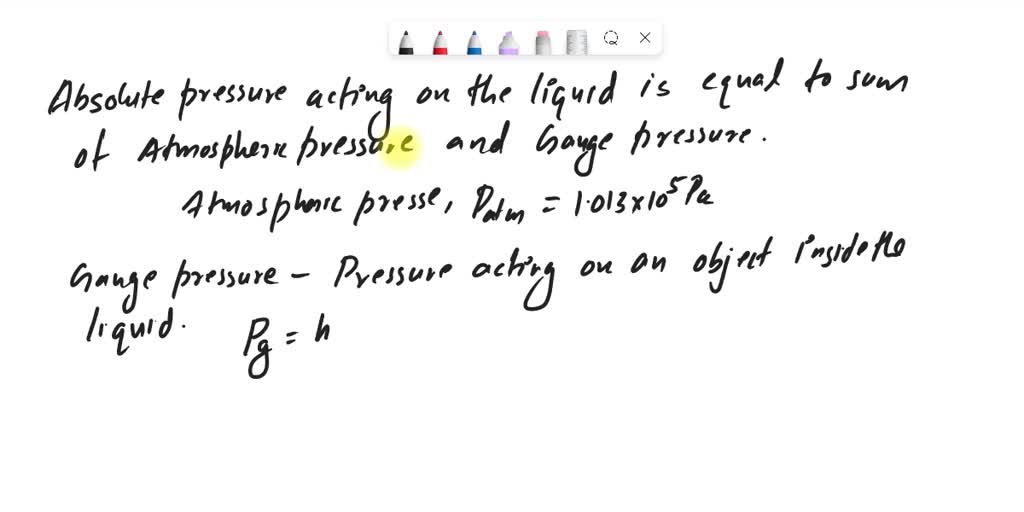 Absolute pressure acting on the liquid is equal to sum
of Atmospheric pressure and Gauge pressure.
Atmospheric presse, Patm = 1.013×10⁵ Pa
Gauge pressure – Pressure acting on an object inside the
liquid. Pg = h